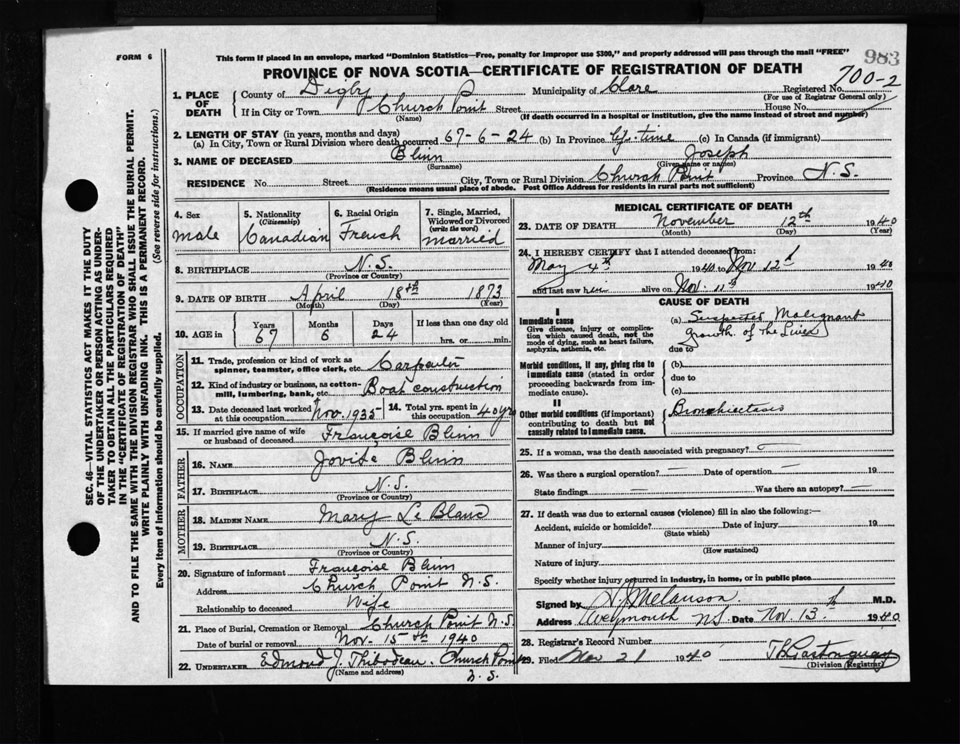 FORM 6
This form if placed in an envelope, marked "Dominion Statistics—Free, penalty for improper use $300," and properly addressed will pass through the mail "FREE"
983
PROVINCE OF NOVA SCOTIA—CERTIFICATE OF REGISTRATION OF DEATH
700-2
1. PLACE OF DEATH County of Digby Municipality of Clare Registered No.
(For use of Registrar General only)
If in City or Town Church Point Street House No.
(Name) (If death occurred in a hospital or institution, give the name instead of street and number)
2. LENGTH OF STAY (in years, months and days)
(a) In City, Town or Rural Division where death occurred 67-6-24 (b) In Province Life time (c) In Canada (if immigrant)
3. NAME OF DECEASED Blinn Joseph
(Surname) (Given name or names)
RESIDENCE No. Street City, Town or Rural Division Church Point Province N.S.
(Residence means usual place of abode. Post Office Address for residents in rural parts not sufficient)
4. Sex 5. Nationality (Citizenship) 6. Racial Origin 7. Single, Married, Widowed or Divorced (write the word)
Male Canadian French married
8. BIRTHPLACE N.S.
(Province or Country)
9. DATE OF BIRTH April 18th 1873
(Month) (Day) (Year)
10. AGE in Years Months Days If less than one day old
67 6 24 hrs. or min.
OCCUPATION
11. Trade, profession or kind of work as spinner, teamster, office clerk, etc. Carpenter
12. Kind of industry or business, as cotton-mill, lumbering, bank, etc. Boat construction
13. Date deceased last worked at this occupation Nov. 1935 14. Total yrs. spent in this occupation 40 yrs
15. If married give name of wife or husband of deceased Françoise Blinn
FATHER
16. NAME Jovite Blinn
17. BIRTHPLACE N.S.
(Province or Country)
MOTHER
18. MAIDEN NAME Mary Le Blanc
19. BIRTHPLACE N.S.
(Province or Country)
20. Signature of informant Françoise Blinn
Address Church Point N.S.
Relationship to deceased Wife
21. Place of Burial, Cremation or Removal Church Point N.S.
Date of burial or removal Nov. 15th 1940
22. UNDERTAKER Edmond J. Thibodeau. Church Point
(Name and address) N.S.
MEDICAL CERTIFICATE OF DEATH
23. DATE OF DEATH November 12th 1940
(Month) (Day) (Year)
24. I HEREBY CERTIFY that I attended deceased from
May 4th 1940 to Nov. 12th 1940
and last saw him alive on Nov. 11th 1940
CAUSE OF DEATH
I
Immediate cause (a) Suspected Malignant growth of the Liver
Give disease, injury or complication which caused death, not the mode of dying, such as heart failure, asphyxia, asthenia, etc.
due to
Morbid conditions, if any, giving rise to immediate cause (stated in order proceeding backwards from immediate cause).
(b)
due to
(c)
II
Other morbid conditions (if important) contributing to death but not causally related to immediate cause. Bronchiectasis
25. If a woman, was the death associated with pregnancy? —
26. Was there a surgical operation? — Date of operation — 19
State findings Was there an autopsy? —
27. If death was due to external causes (violence) fill in also the following:—
Accident, suicide or homicide? Date of injury 19
(State which)
Manner of injury
(How sustained)
Nature of injury
Specify whether injury occurred in industry, in home, or in public place
Signed by Melanson M.D.
Address Weymouth NS Date Nov. 13th 1940
28. Registrar's Record Number
29. Filed Nov 21 1940
(Division Registrar)
SEC. 46—VITAL STATISTICS ACT MAKES IT THE DUTY
OF THE UNDERTAKER OR PERSON ACTING AS UNDER-
TAKER TO OBTAIN ALL THE PARTICULARS REQUIRED
IN THE "CERTIFICATE OF REGISTRATION OF DEATH"
AND TO FILE THE SAME WITH THE DIVISION REGISTRAR WHO SHALL ISSUE THE BURIAL PERMIT.
WRITE PLAINLY WITH UNFADING INK. THIS IS A PERMANENT RECORD.
Every item of information should be carefully supplied. (See reverse side for instructions.)